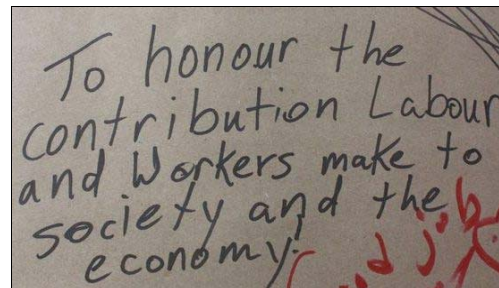 To honour the
contribution Labour
and Workers make to
society and the
economy!